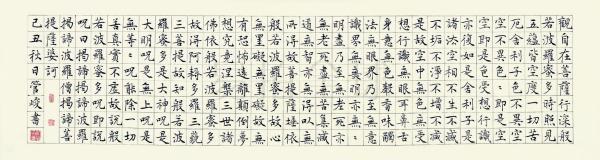 觀自在菩薩行深般
若波羅蜜多時照見
五蘊皆空度一切苦
厄舍利子色不異空
空不異色色即是空
空即是色受想行識
亦復如是舍利子是
諸法空相不生不滅
不垢不淨不增不減
是故空中無色無受
想行識無眼耳鼻舌
身意無色聲香味觸
法無眼界乃至無意
識界無無明亦無無
明盡乃至無老死亦
無老死盡無苦集滅
道無智亦無得以無
所得故菩提薩埵依
般若波羅蜜多故心
無罣礙無罣礙故無
有恐怖遠離顛倒夢
想究竟涅槃三世諸
佛依般若波羅蜜多
故得阿耨多羅三藐
三菩提故知般若波
羅蜜多是大神呪是
大明呪是無上呪是
無等等呪能除一切
苦真實不虛故說般
若波羅蜜多呪即說
呪曰揭諦揭諦波羅
揭諦波羅僧揭諦菩
提薩婆訶
己丑秋日管峻書